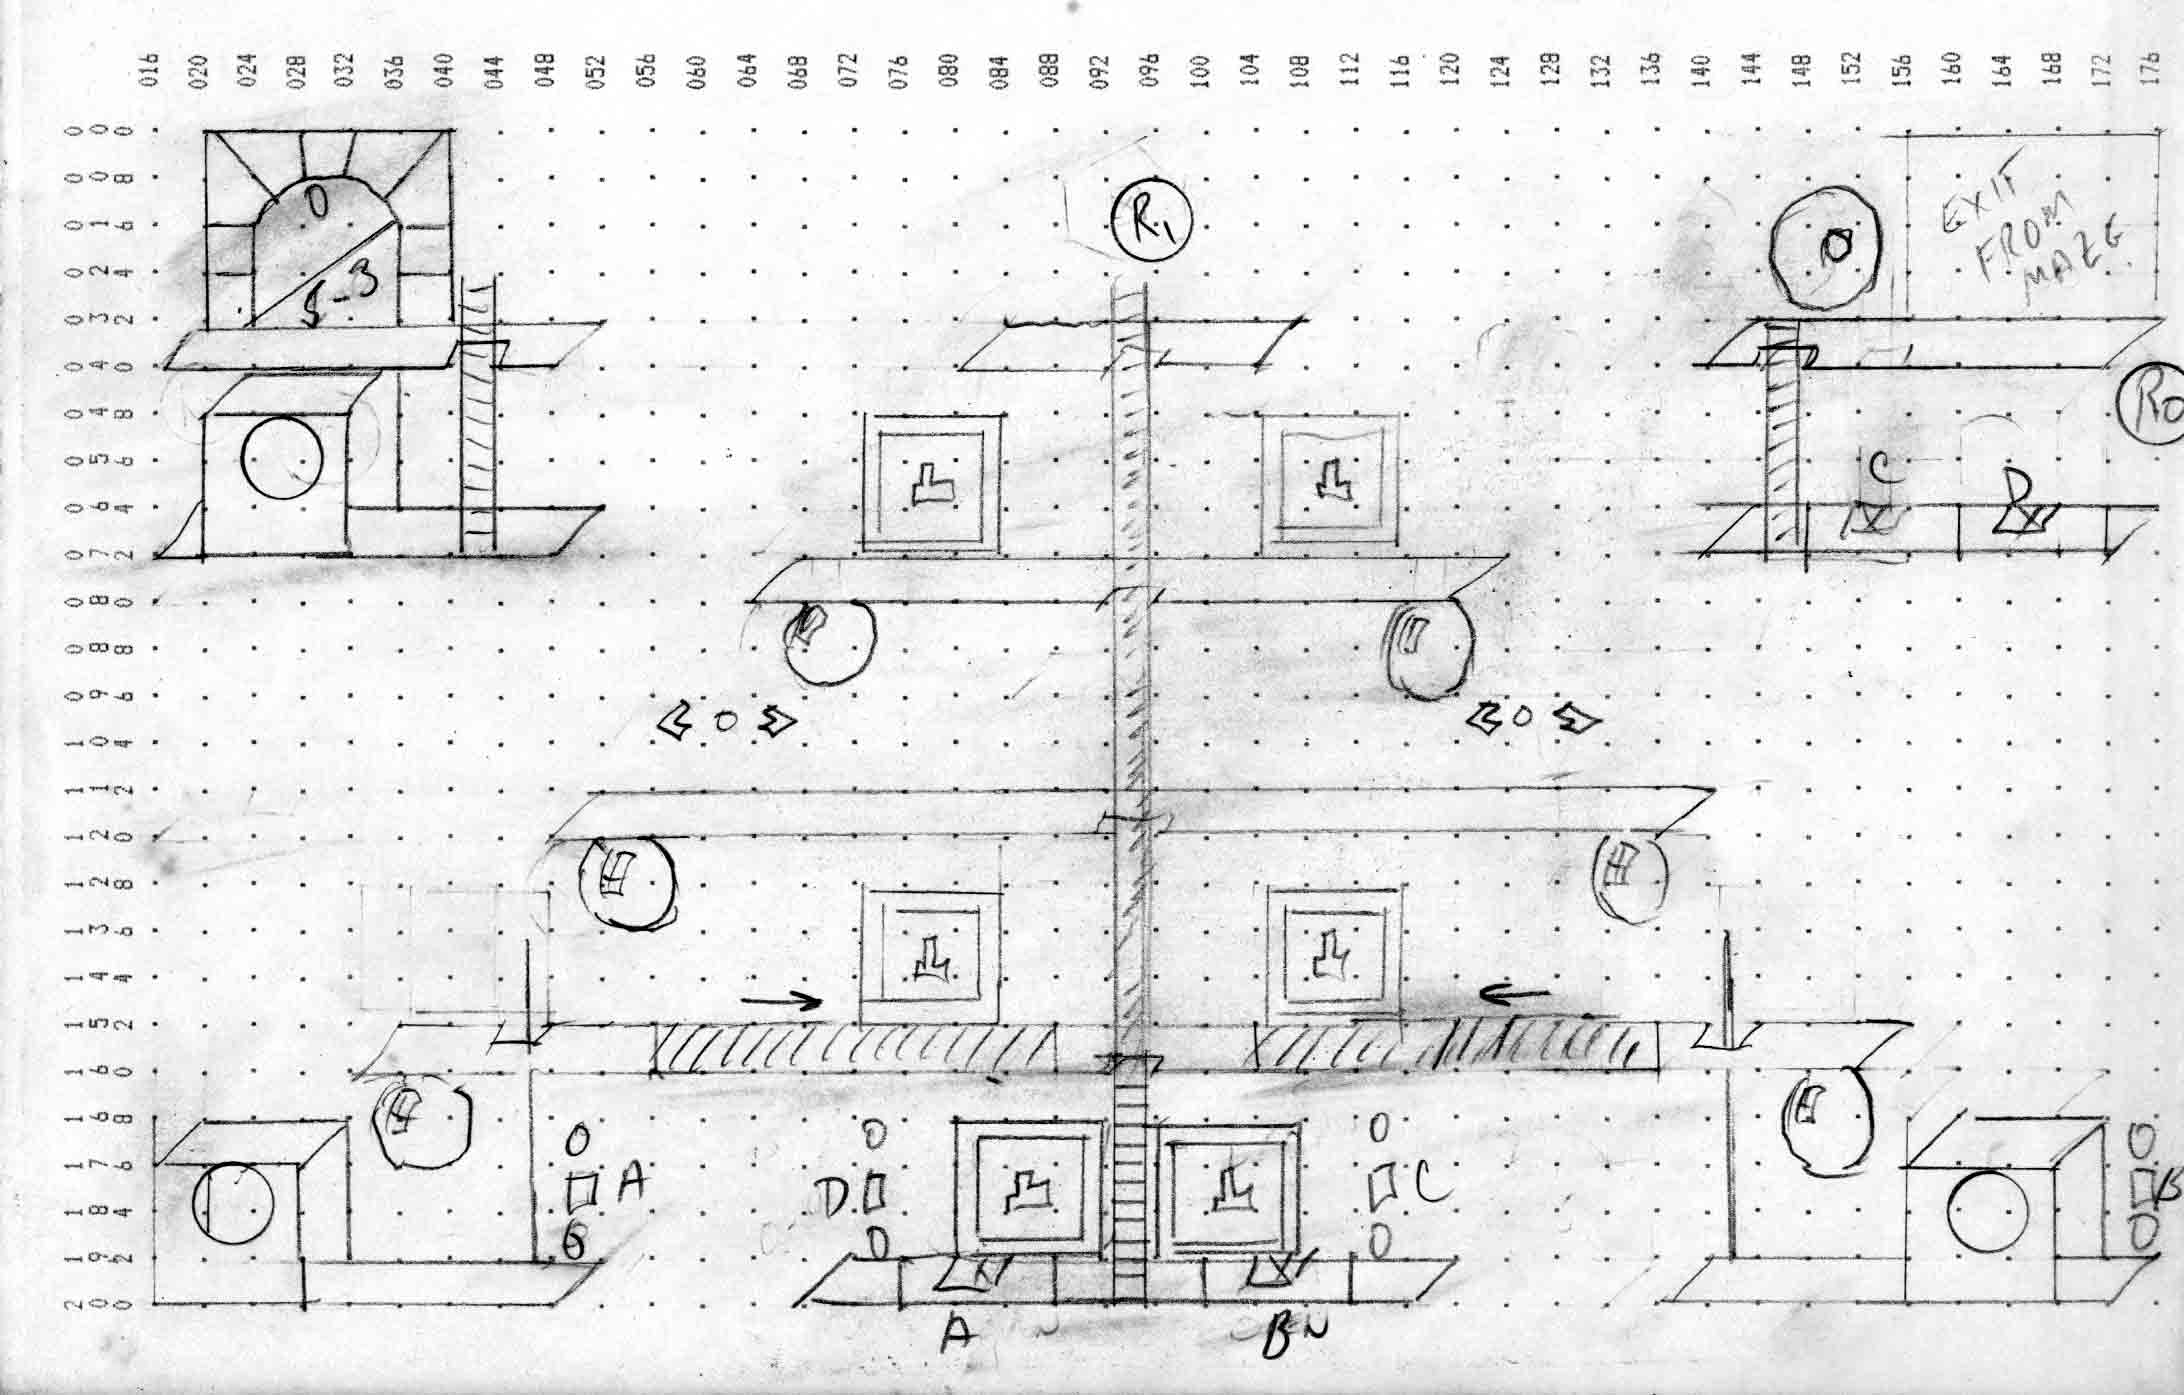 016 020 024 028 032 036 040 044 048 052 056 060 064 068 072 076 080 084 088 092 096 100 104 108 112 116 120 124 128 132 136 140 144 148 152 156 160 164 168 172 176
000
008
016
024
032
040
048
056
064
072
080
088
096
104
112
120
128
136
144
152
160
168
176
184
192
200
0
R1
EXIT
FROM
MAZE
R0
C
D
0
0
A
D
C
B
A
B